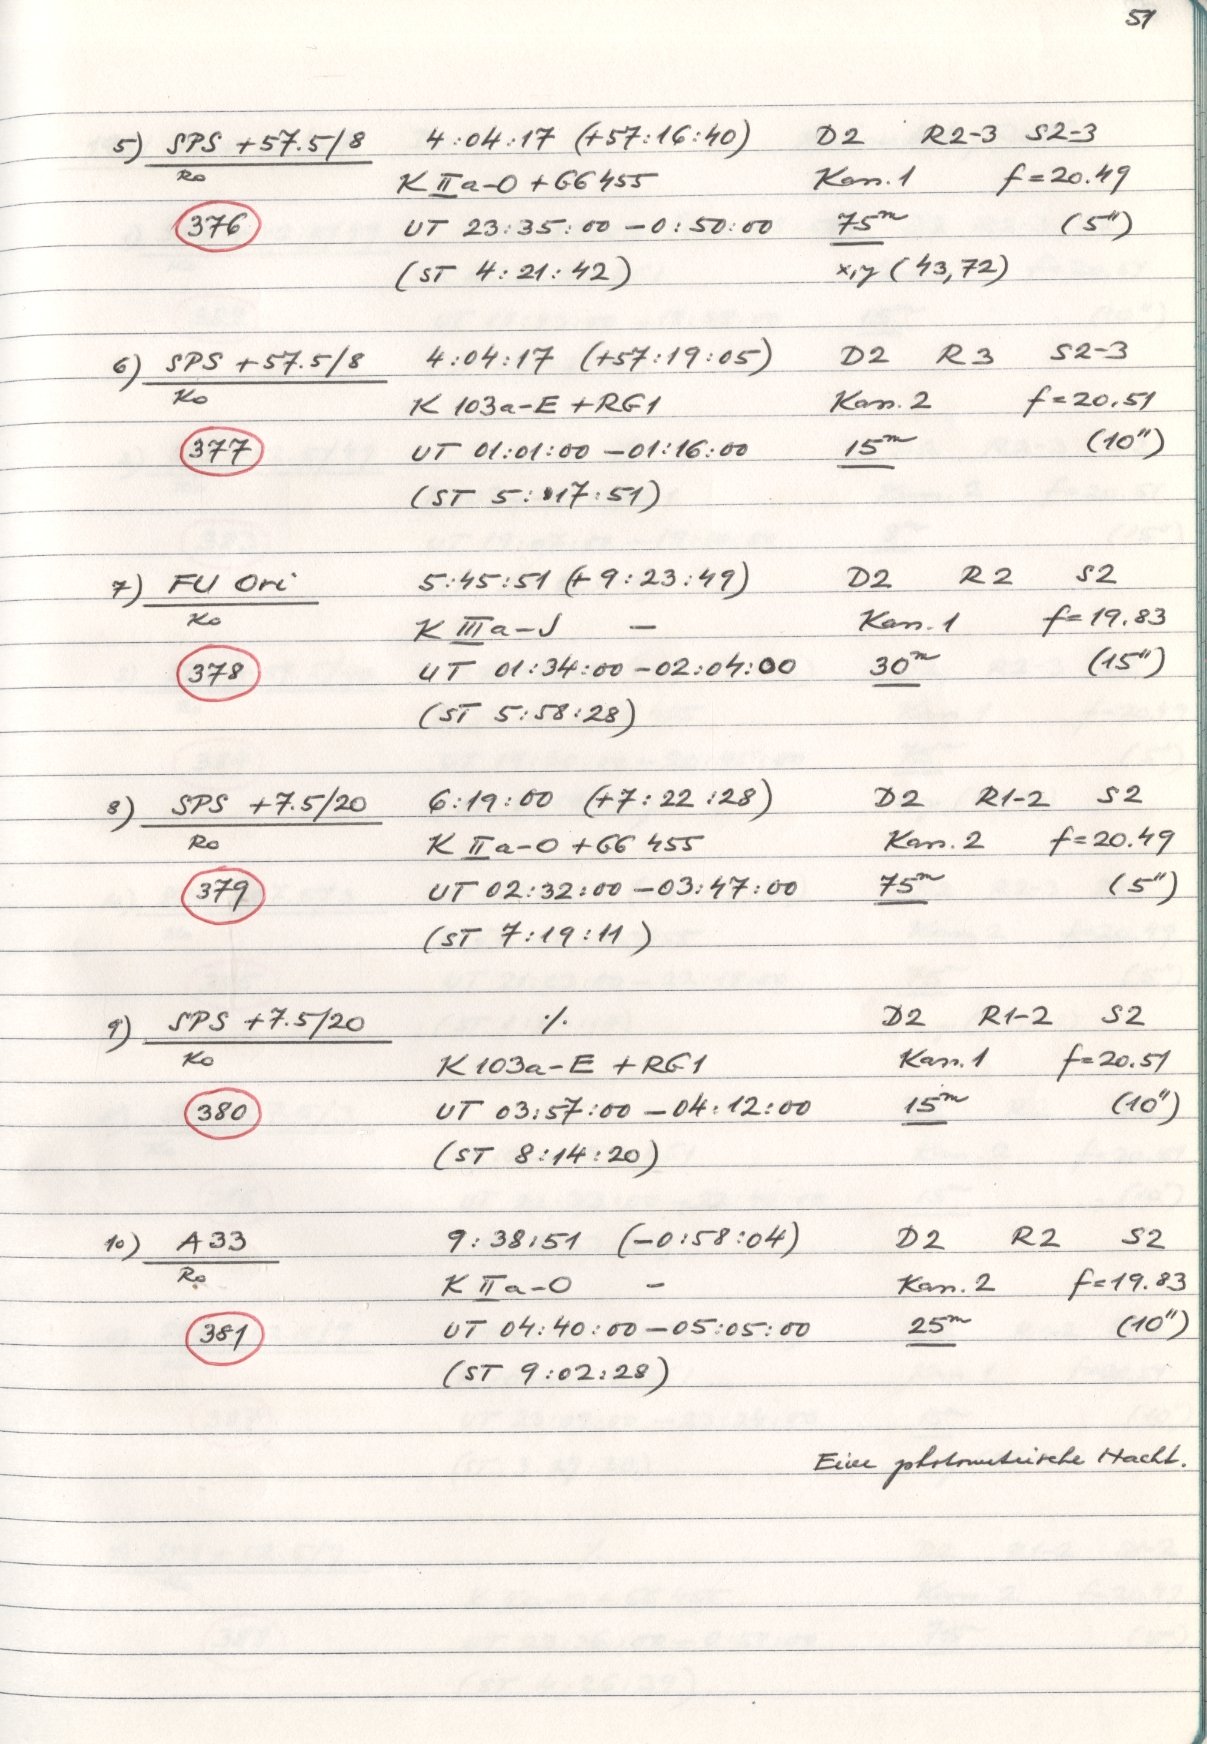 51
5) SPS +57.5/8 4:04:17 (+57:16:40) D2 R2-3 S2-3
Ro K IIa-O + GG 455 Kass. 1 f = 20.49
376 UT 23:35:00 - 0:50:00 75m (5")
(ST 4:21:42) x,y (43,72)
6) SPS +57.5/8 4:04:17 (+57:19:05) D2 R3 S2-3
Ko K 103a-E + RG1 Kass. 2 f = 20.51
377 UT 01:01:00 - 01:16:00 15m (10")
(ST 5:17:51)
7) FU Ori 5:45:51 (+9:23:49) D2 R2 S2
Ko K IIIa-J - Kass. 1 f = 19.83
378 UT 01:34:00 - 02:04:00 30m (15")
(ST 5:58:28)
8) SPS +7.5/20 6:19:00 (+7:22:28) D2 R1-2 S2
Ro K IIa-O + GG 455 Kass. 2 f = 20.49
379 UT 02:32:00 - 03:47:00 75m (5")
(ST 7:19:11)
9) SPS +7.5/20 ·/. D2 R1-2 S2
Ko K 103a-E + RG1 Kass. 1 f = 20.51
380 UT 03:57:00 - 04:12:00 15m (10")
(ST 8:14:20)
10) A33 9:38:51 (-0:58:04) D2 R2 S2
Ro K IIa-O - Kass. 2 f = 19.83
381 UT 04:40:00 - 05:05:00 25m (10")
(ST 9:02:28)
Eine photometrische Nacht.